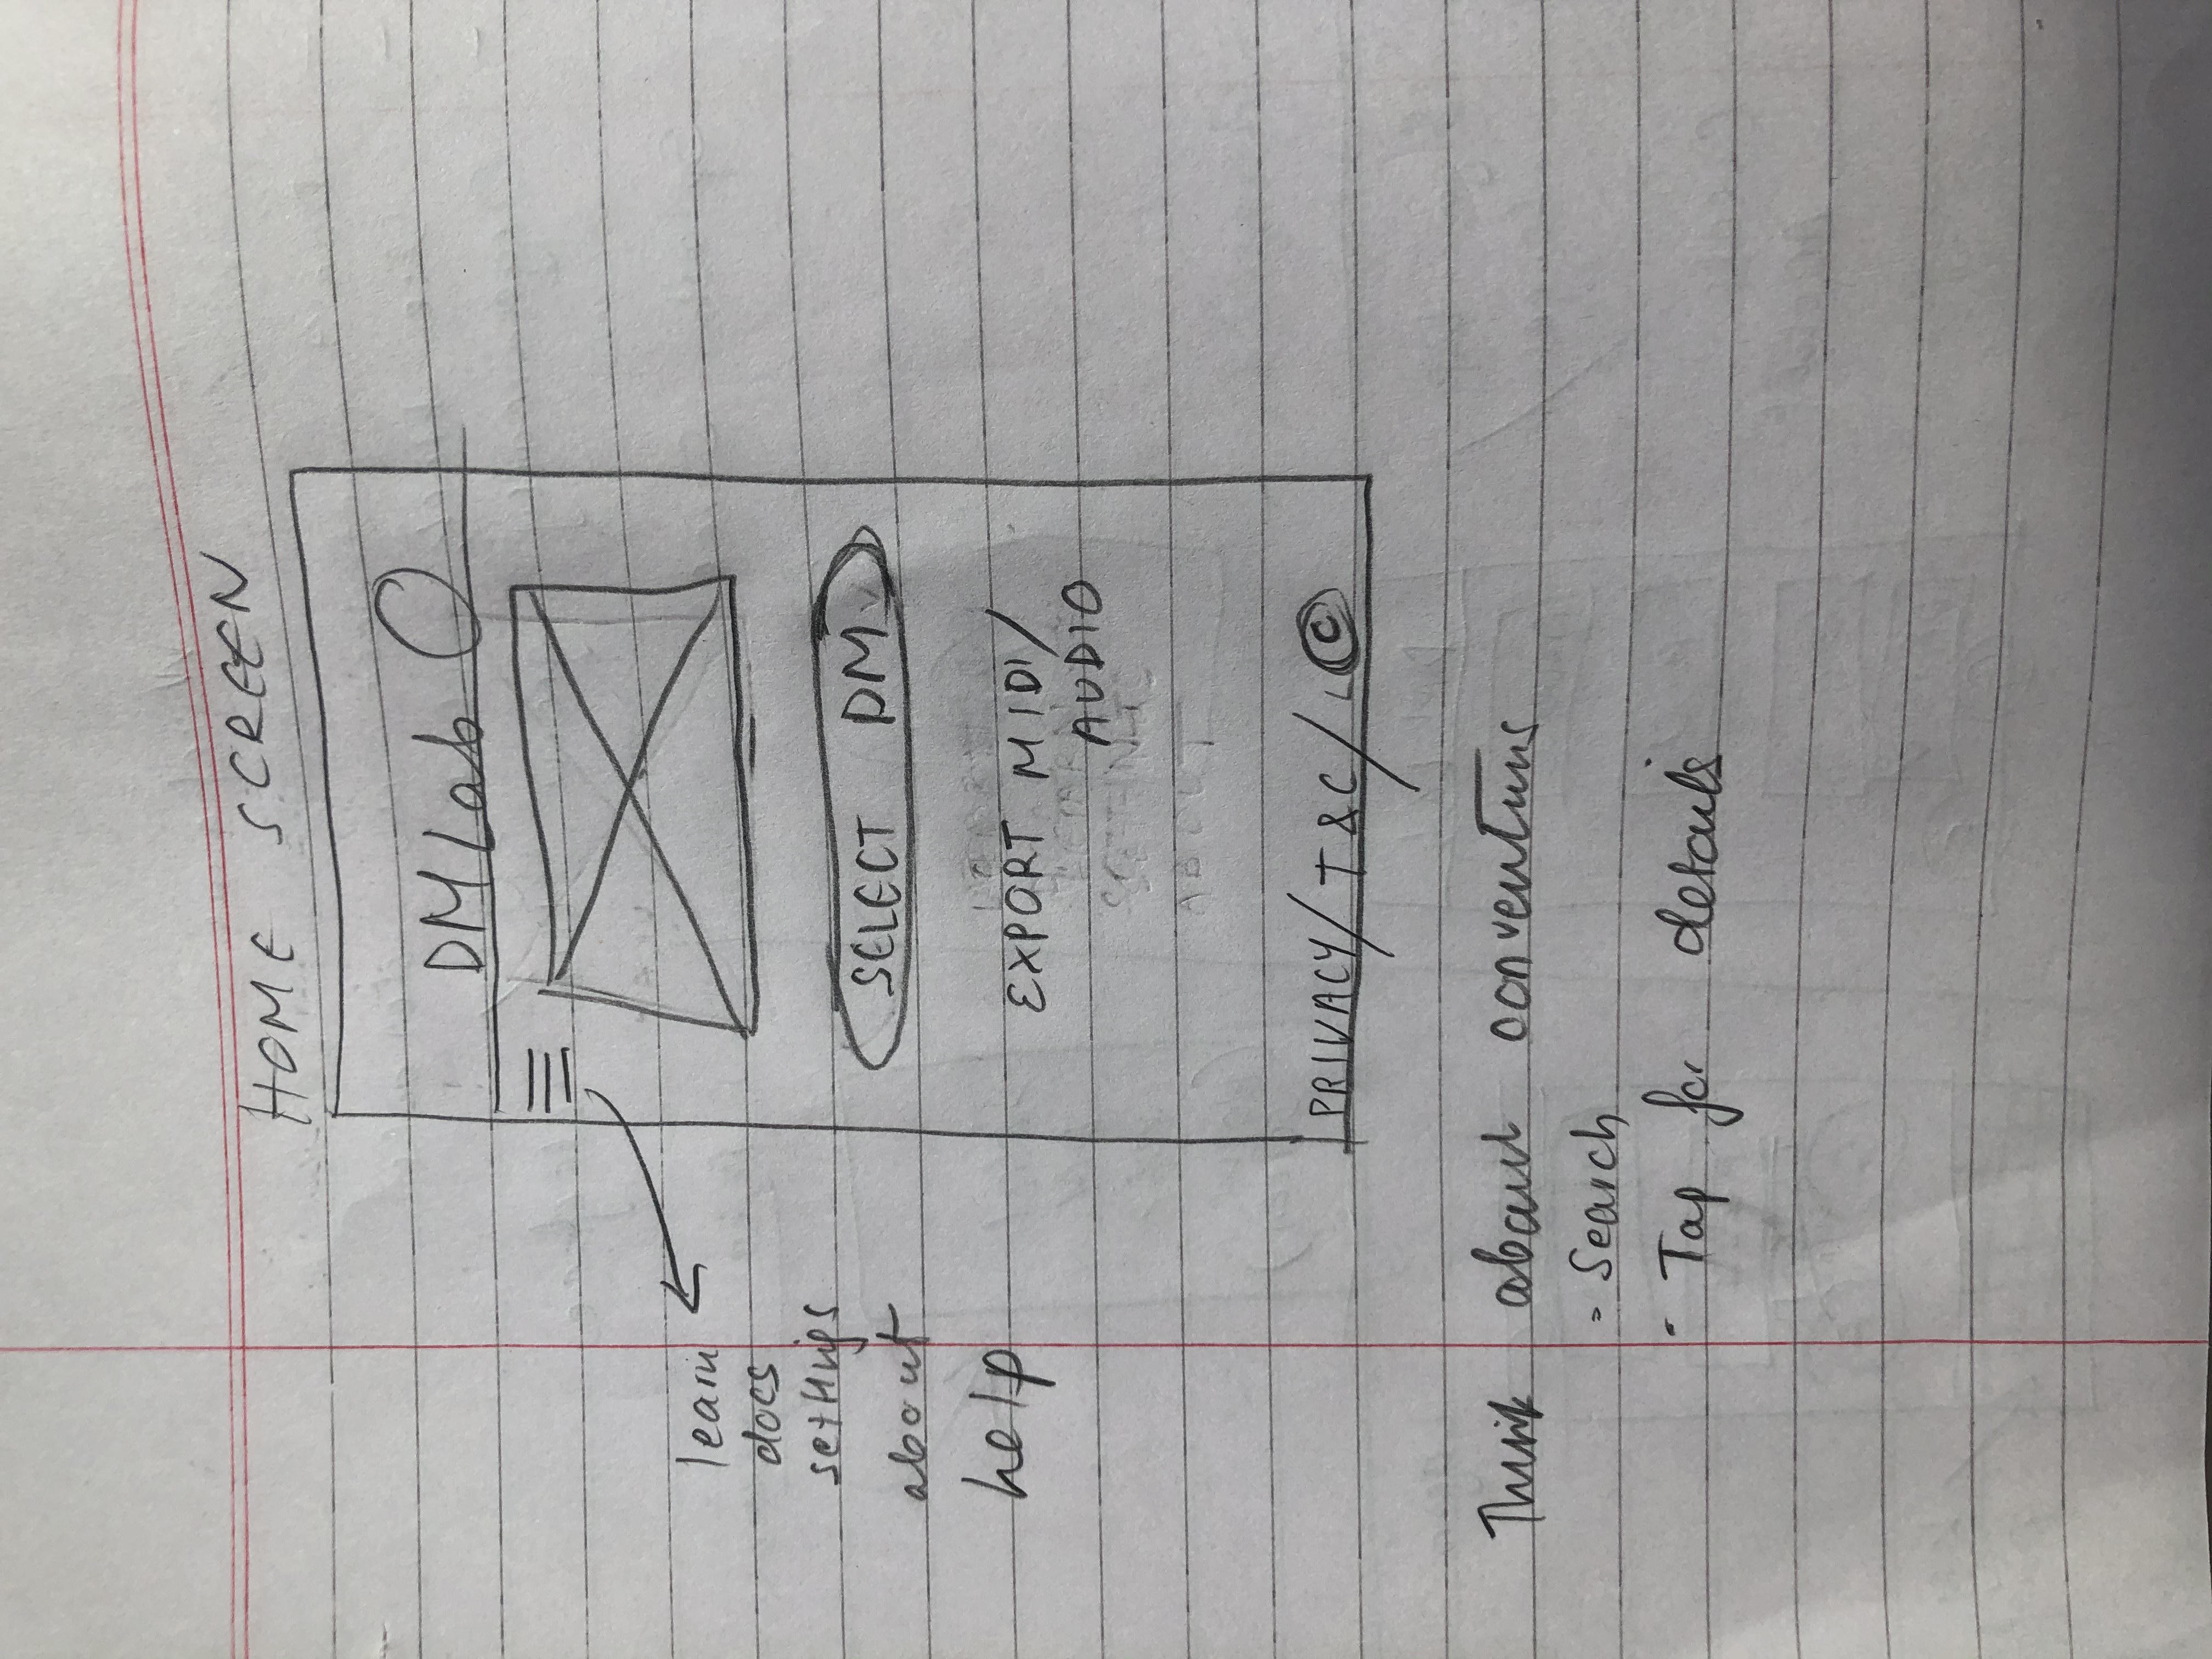 HOME SCREEN
DM Lab
learn
docs
settings
about
help
SELECT DM
EXPORT MIDI/
AUDIO
PRIVACY/ T&C/ ©
Think about conventions
- Search
- Tap for details